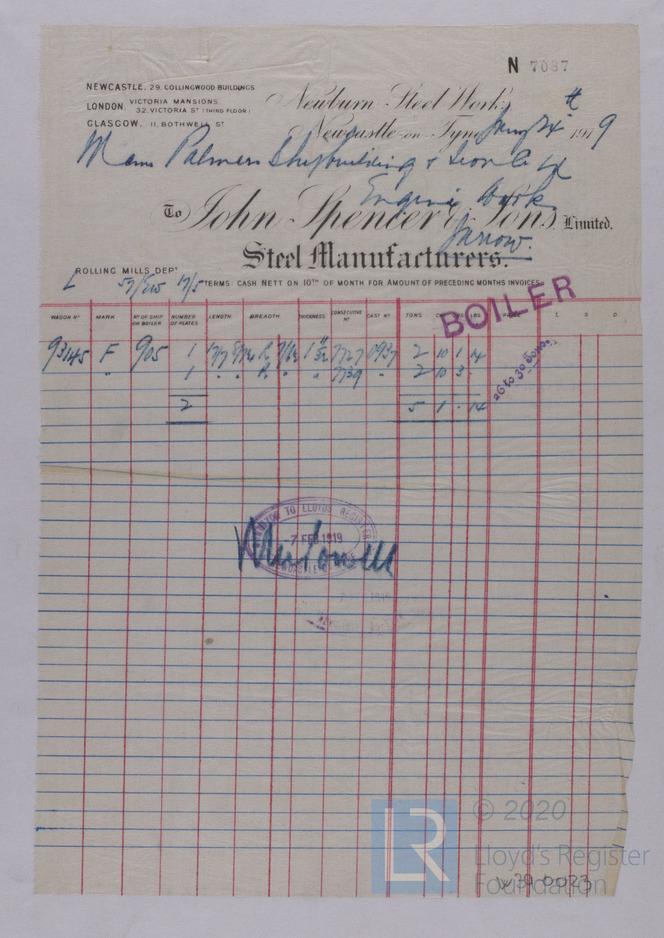 N 7087
NEWCASTLE. 29. COLLINGWOOD BUILDINGS
LONDON. VICTORIA MANSIONS. 32. VICTORIA ST (THIRD FLOOR)
GLASGOW. 11. BOTHWELL ST
Newburn Steel Works
Newcastle-on-Tyne 24th 1919
Palmers Shipbuilding & Iron Co Ld
Engine Works
Jarrow.
To John Spencer & Sons, Limited.
Steel Manufacturers.
ROLLING MILLS DEPT
TERMS: CASH NETT ON 10TH OF MONTH FOR AMOUNT OF PRECEDING MONTHS INVOICES
BOILER
WAGON No MARK No OF SHIP OR BOILER NUMBER OF PLATES LENGTH BREADTH THICKNESS CONSECUTIVE No CAST No TONS L. S. D.
93145 F 905 1 7727 0937 2 10 1 14
" 1 " " " 7739 " 2 10 3 .
2 5 1 . 14
26 to 30 tons
LLOYDS REGISTER
-7 FEB 1919
© 2020
Lloyd's Register
Foundation
W39-0023